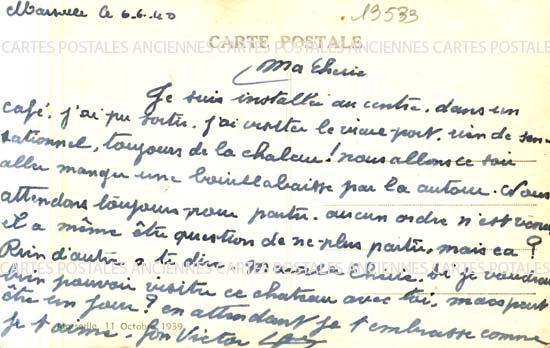 Marseille le 6.6.40
13533
CARTES POSTALES ANCIENNES CARTES POSTALES ANCIENNES CARTES POSTALES
CARTE POSTALE
Ma Cherie
Je suis installée au centre, dans un
café, j'ai pu sortir, j'ai visiter le vieux port, rien de sen-
sationnel, toujours de la chaleur! nous allons ce soir
aller manger une bouillabaisse par la autour. Nous
attendons toujours pour partir. aucun ordre n'est venu
il a même être question de ne plus partir, mais ça?
Rien d'autre a te dire, Cherie. Si je voudrais
bien pouvoir visiter ce chateau avec toi, mais peut
être un jour? en attendant je t'embrasse comme
je t'aime. ton Victor
Marseille, 11 Octobre 1939